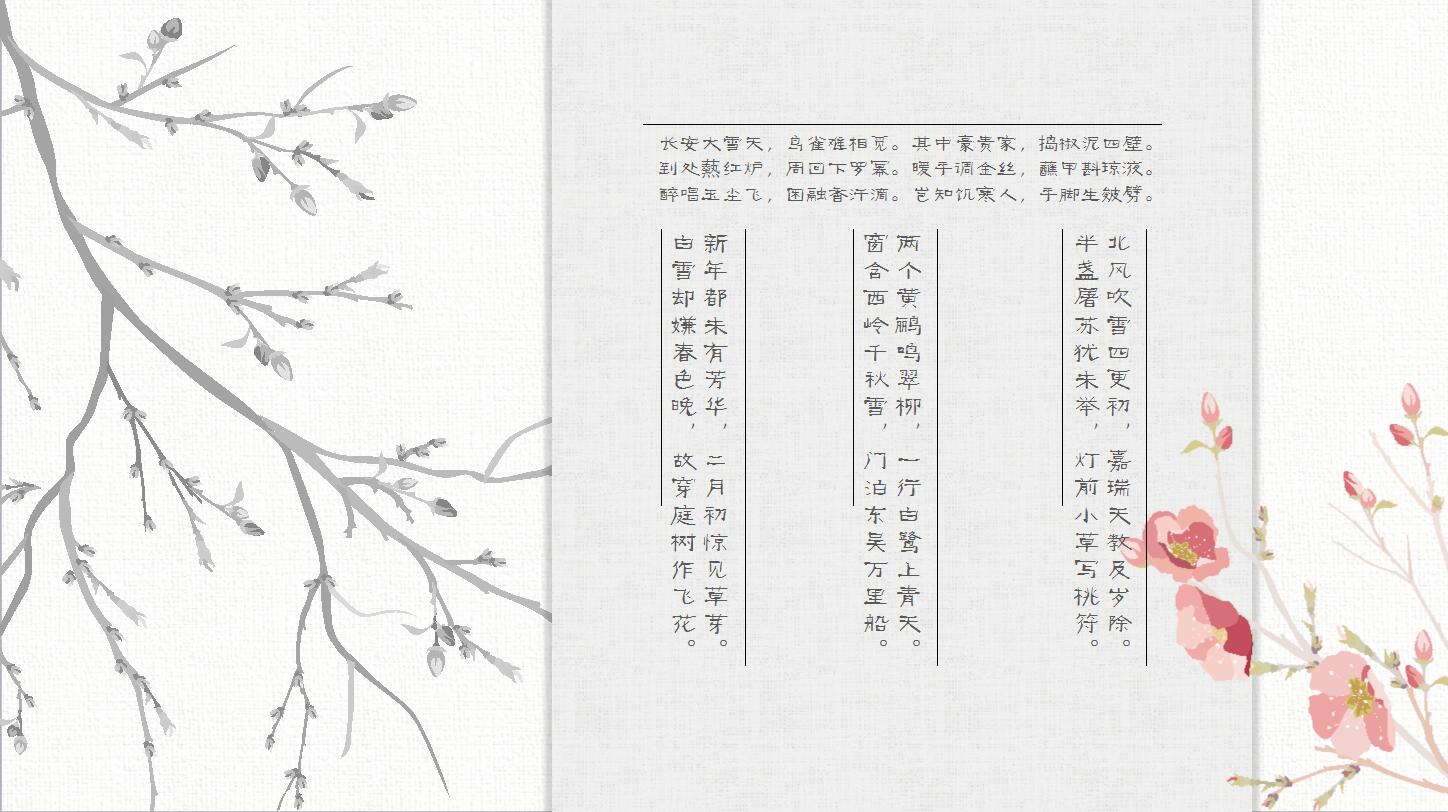 长安大雪天，鸟雀难相觅。其中豪贵家，捣椒泥四壁。
到处爇红炉，周回下罗幂。暖手调金丝，蘸甲斟琼液。
醉唱玉尘飞，困融香汗滴。岂知饥寒人，手脚生皴劈。
北风吹雪四更初，嘉瑞天教及岁除。
半盏屠苏犹未举，灯前小草写桃符。
两个黄鹂鸣翠柳，一行白鹭上青天。
窗含西岭千秋雪，门泊东吴万里船。
新年都未有芳华，二月初惊见草芽。
白雪却嫌春色晚，故穿庭树作飞花。